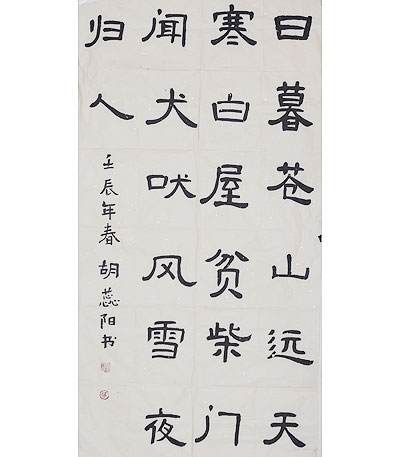 日暮苍山远天
寒白屋贫柴门
闻犬吠风雪夜
归人
壬辰年春 胡蕊阳书